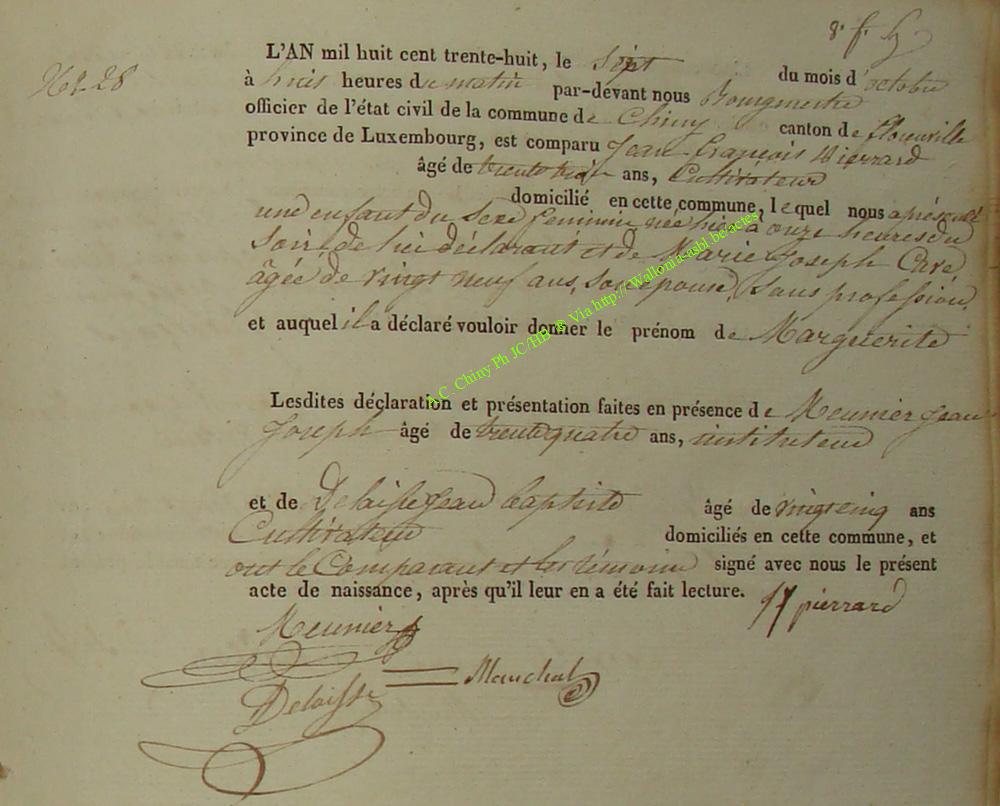 N° 28
L'AN mil huit cent trente-huit, le sept du mois d'octobre
à huit heures du matin par-devant nous Bourgmestre
officier de l'état civil de la commune de Chiny canton de florenville
province de Luxembourg, est comparu Jean françois Pierrard
âgé de trente huit ans, Cultivateur
domicilié en cette commune, lequel nous a présenté
une enfant du Sexe feminin née hier à onze heures du
soir de lui déclarant et de Marie Joseph Caré
âgée de vingt neuf ans, son épouse, sans profession
et auquel il a déclaré vouloir donner le prénom de Marguerite
Lesdites déclaration et présentation faites en présence de Meunier Jean
Joseph âgé de trente quatre ans, instituteur
et de Delaisse Jean baptiste âgé de vingt cinq ans
Cultivateur domiciliés en cette commune, et
ont le Comparant et les témoins signé avec nous le présent
acte de naissance, après qu'il leur en a été fait lecture. J f pierrard
Meunier
Marchal
Delaisse
A.C. Chiny Ph JC/HB @ Via http://wallonia-asbl.be:actes